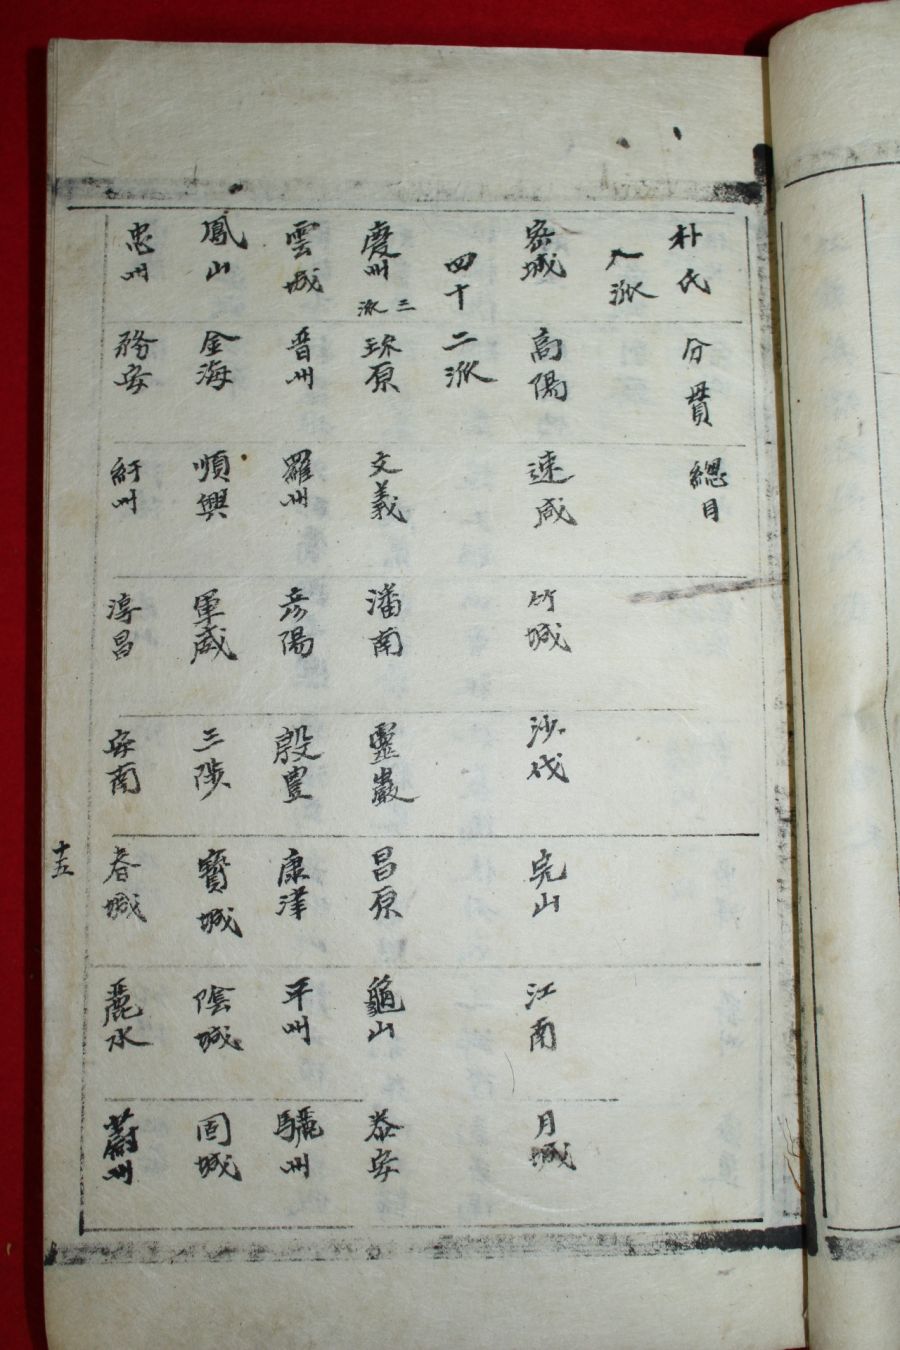 朴氏分貫總目
八派
密城 高陽 速咸 竹城 沙伐 完山 江南 月城
四十二派
慶州三派 珎原 文義 潘南 靈巖 昌原 龜山 泰安
雲城 晋州 羅州 彦陽 殷豊 康津 平州 驪州
鳳山 金海 順興 軍威 三陟 寶城 陰城 固城
忠州 務安 紆州 淳昌 安南 春城 麗水 蔚州
十五